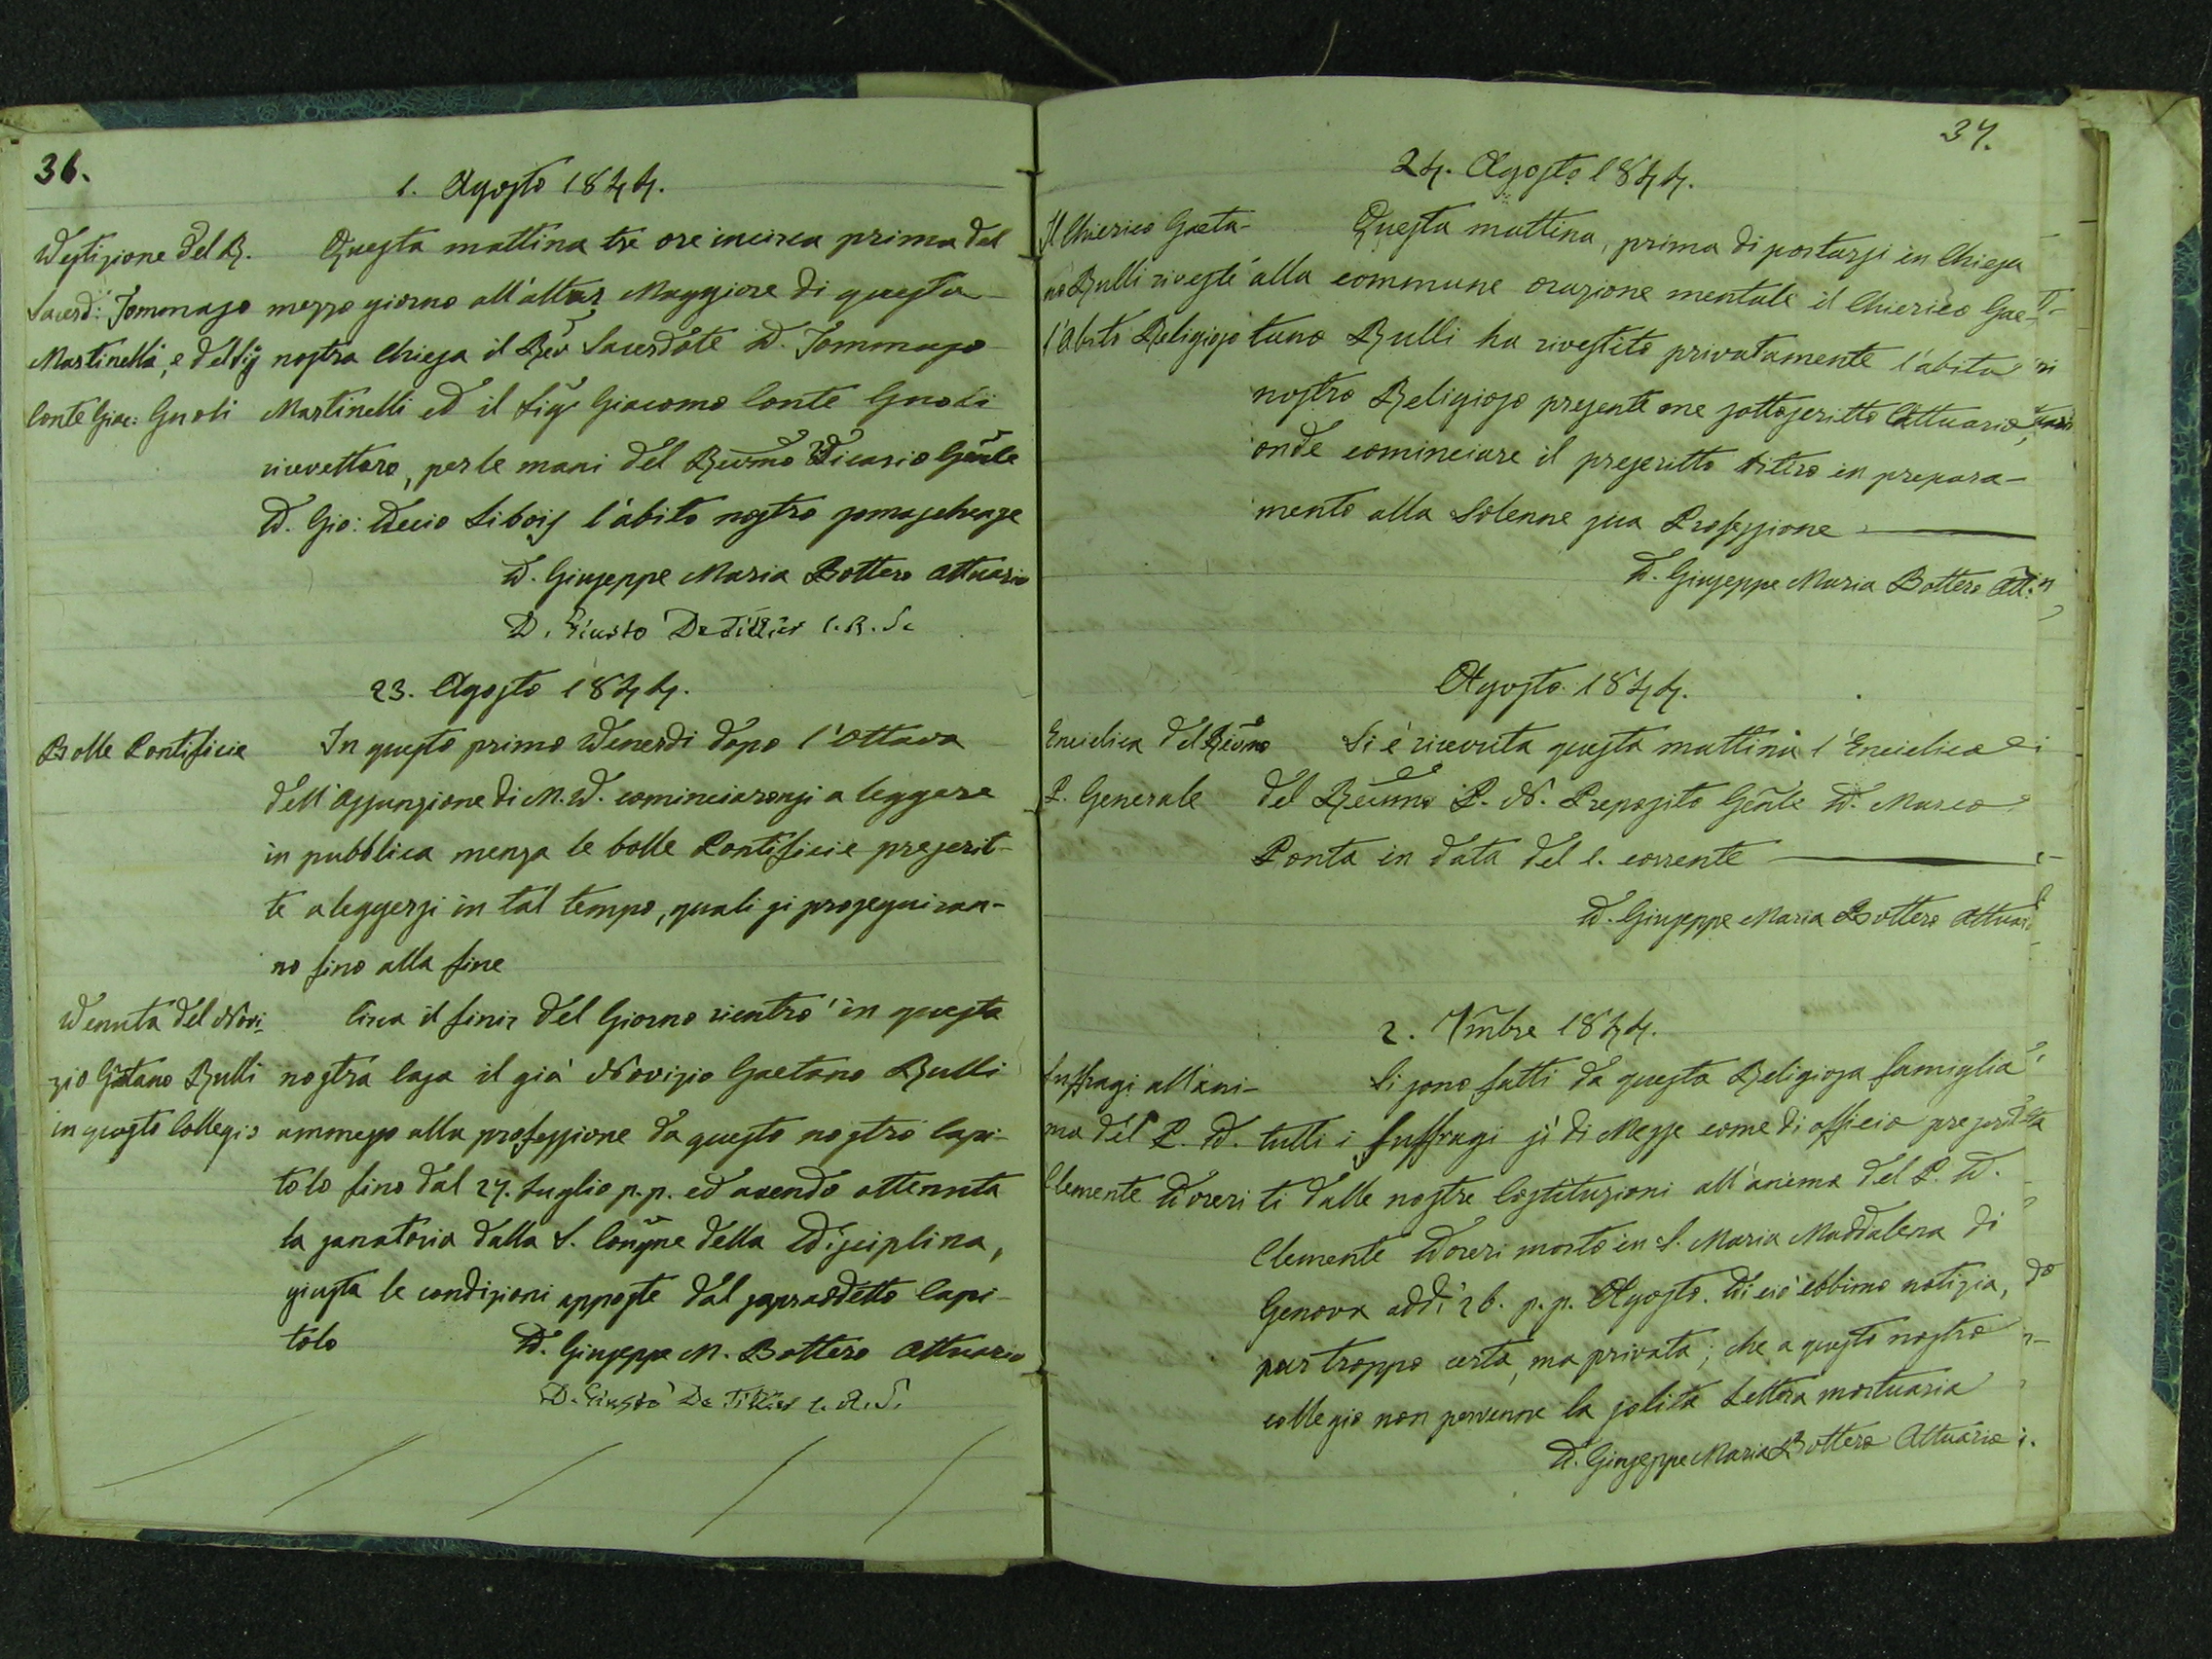 36.
1. Agosto 1844.
Vestizione del R.
Sacerd: Tommaso
Martinelli, e del Sig
Conte Giac: Gnoli
Questa mattina tre ore incirca prima del
mezzo giorno all'altar Maggiore di questa
nostra Chiesa il Rev Sacerdote D. Tommaso
Martinelli ed il Sigr Giacomo Conte Gnoli
ricevettero, per le mani del Revmo Vicario Gnle
D. Gio: Decio Libois l'abito nostro somaschense
D. Giuseppe Maria Bottero Attuario
D. Giusto De Tillier C.R.S.
23. Agosto 1844.
Bolle Pontificie
In questo primo Venerdi dopo l'Ottava
dell'Assunzione di M.V. cominciaronsi a leggere
in pubblica mensa le bolle Pontificie prescrit-
te a leggersi in tal tempo, quali si proseguiran-
no fino alla fine
Venuta del Novi-
zio Gaetano Rulli
in questo Collegio
Circa il finir del Giorno rientrò in questa
nostra Casa il già Novizio Gaetano Rulli
ammesso alla professione da questo nostro Capi-
tolo fino dal 27. Luglio p.p. ed avendo ottenuta
la sanatoria dalla S. Congne della Disciplina,
giusta le condizioni apposte dal sopraddetto Capi-
tolo
D. Giuseppe M. Bottero Attuario
D. Giusto De Tillier C.R.S.
37.
24. Agosto 1844.
Il Chierico Gaeta-
no Rulli riveste
l'Abito Religioso
Questa mattina, prima di portarsi in Chiesa
alla commune orazione mentale il Chierico Gae-
tano Rulli ha rivestito privatamente l'abito
nostro Religioso presente me sottoscritto Attuario,
onde cominciare il prescritto ritiro in prepara-
mento alla Solenne sua Professione
D. Giuseppe Maria Bottero Att:
Agosto 1844.
Enciclica del Revmo
P. Generale
Si è ricevuta questa mattina l'Enciclica
del Revmo P. N. Preposito Gnle D. Marco
Ponta in data del 1. corrente
D. Giuseppe Maria Bottero Attuario
2. 7mbre 1844.
Suffragi all'ani-
ma del P. D.
Clemente Doveri
Si sono fatti da questa Religiosa famiglia
tutti i Suffragi sì di Messe come di officio prescrit
ti dalle nostre Costituzioni all'anima del P. D.
Clemente Doveri morto in S. Maria Maddalena di
Genova addì 26. p.p. Agosto. Di ciò ebbimo notizia,
pur troppo certa, ma privata; che a questo nostro
collegio non pervenne la solita Lettera mortuaria
D. Giuseppe Maria Bottero Attuario